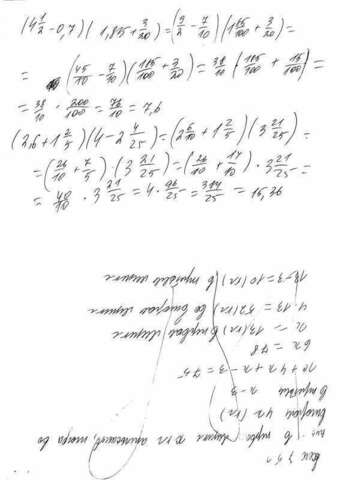 (4 1/2 - 0,7)(1,85 + 3/20) = (9/2 - 7/10)(185/100 + 3/20) =
= (45/10 - 7/10)(185/100 + 3/20) = 38/10 · (185/100 + 15/100) =
= 38/10 · 200/100 = 76/10 = 7,6
(2,6 + 1 2/5)(4 - 2 4/25) = (2 6/10 + 1 2/5)(3 21/25) =
= (26/10 + 7/5) · (3 21/25) = (26/10 + 14/10) · 3 21/25 =
= 40/10 · 3 21/25 = 4 · 96/25 = 384/25 = 15,36
в ящике x кг апельсинов, тогда во
втором 4x (кг)
в третьем x - 3
x + 4x + x - 3 = 75
6x = 78
x = 13 (кг) в первом ящике
4 · 13 = 52 (кг) во втором ящике
13 - 3 = 10 (кг) в третьем ящике